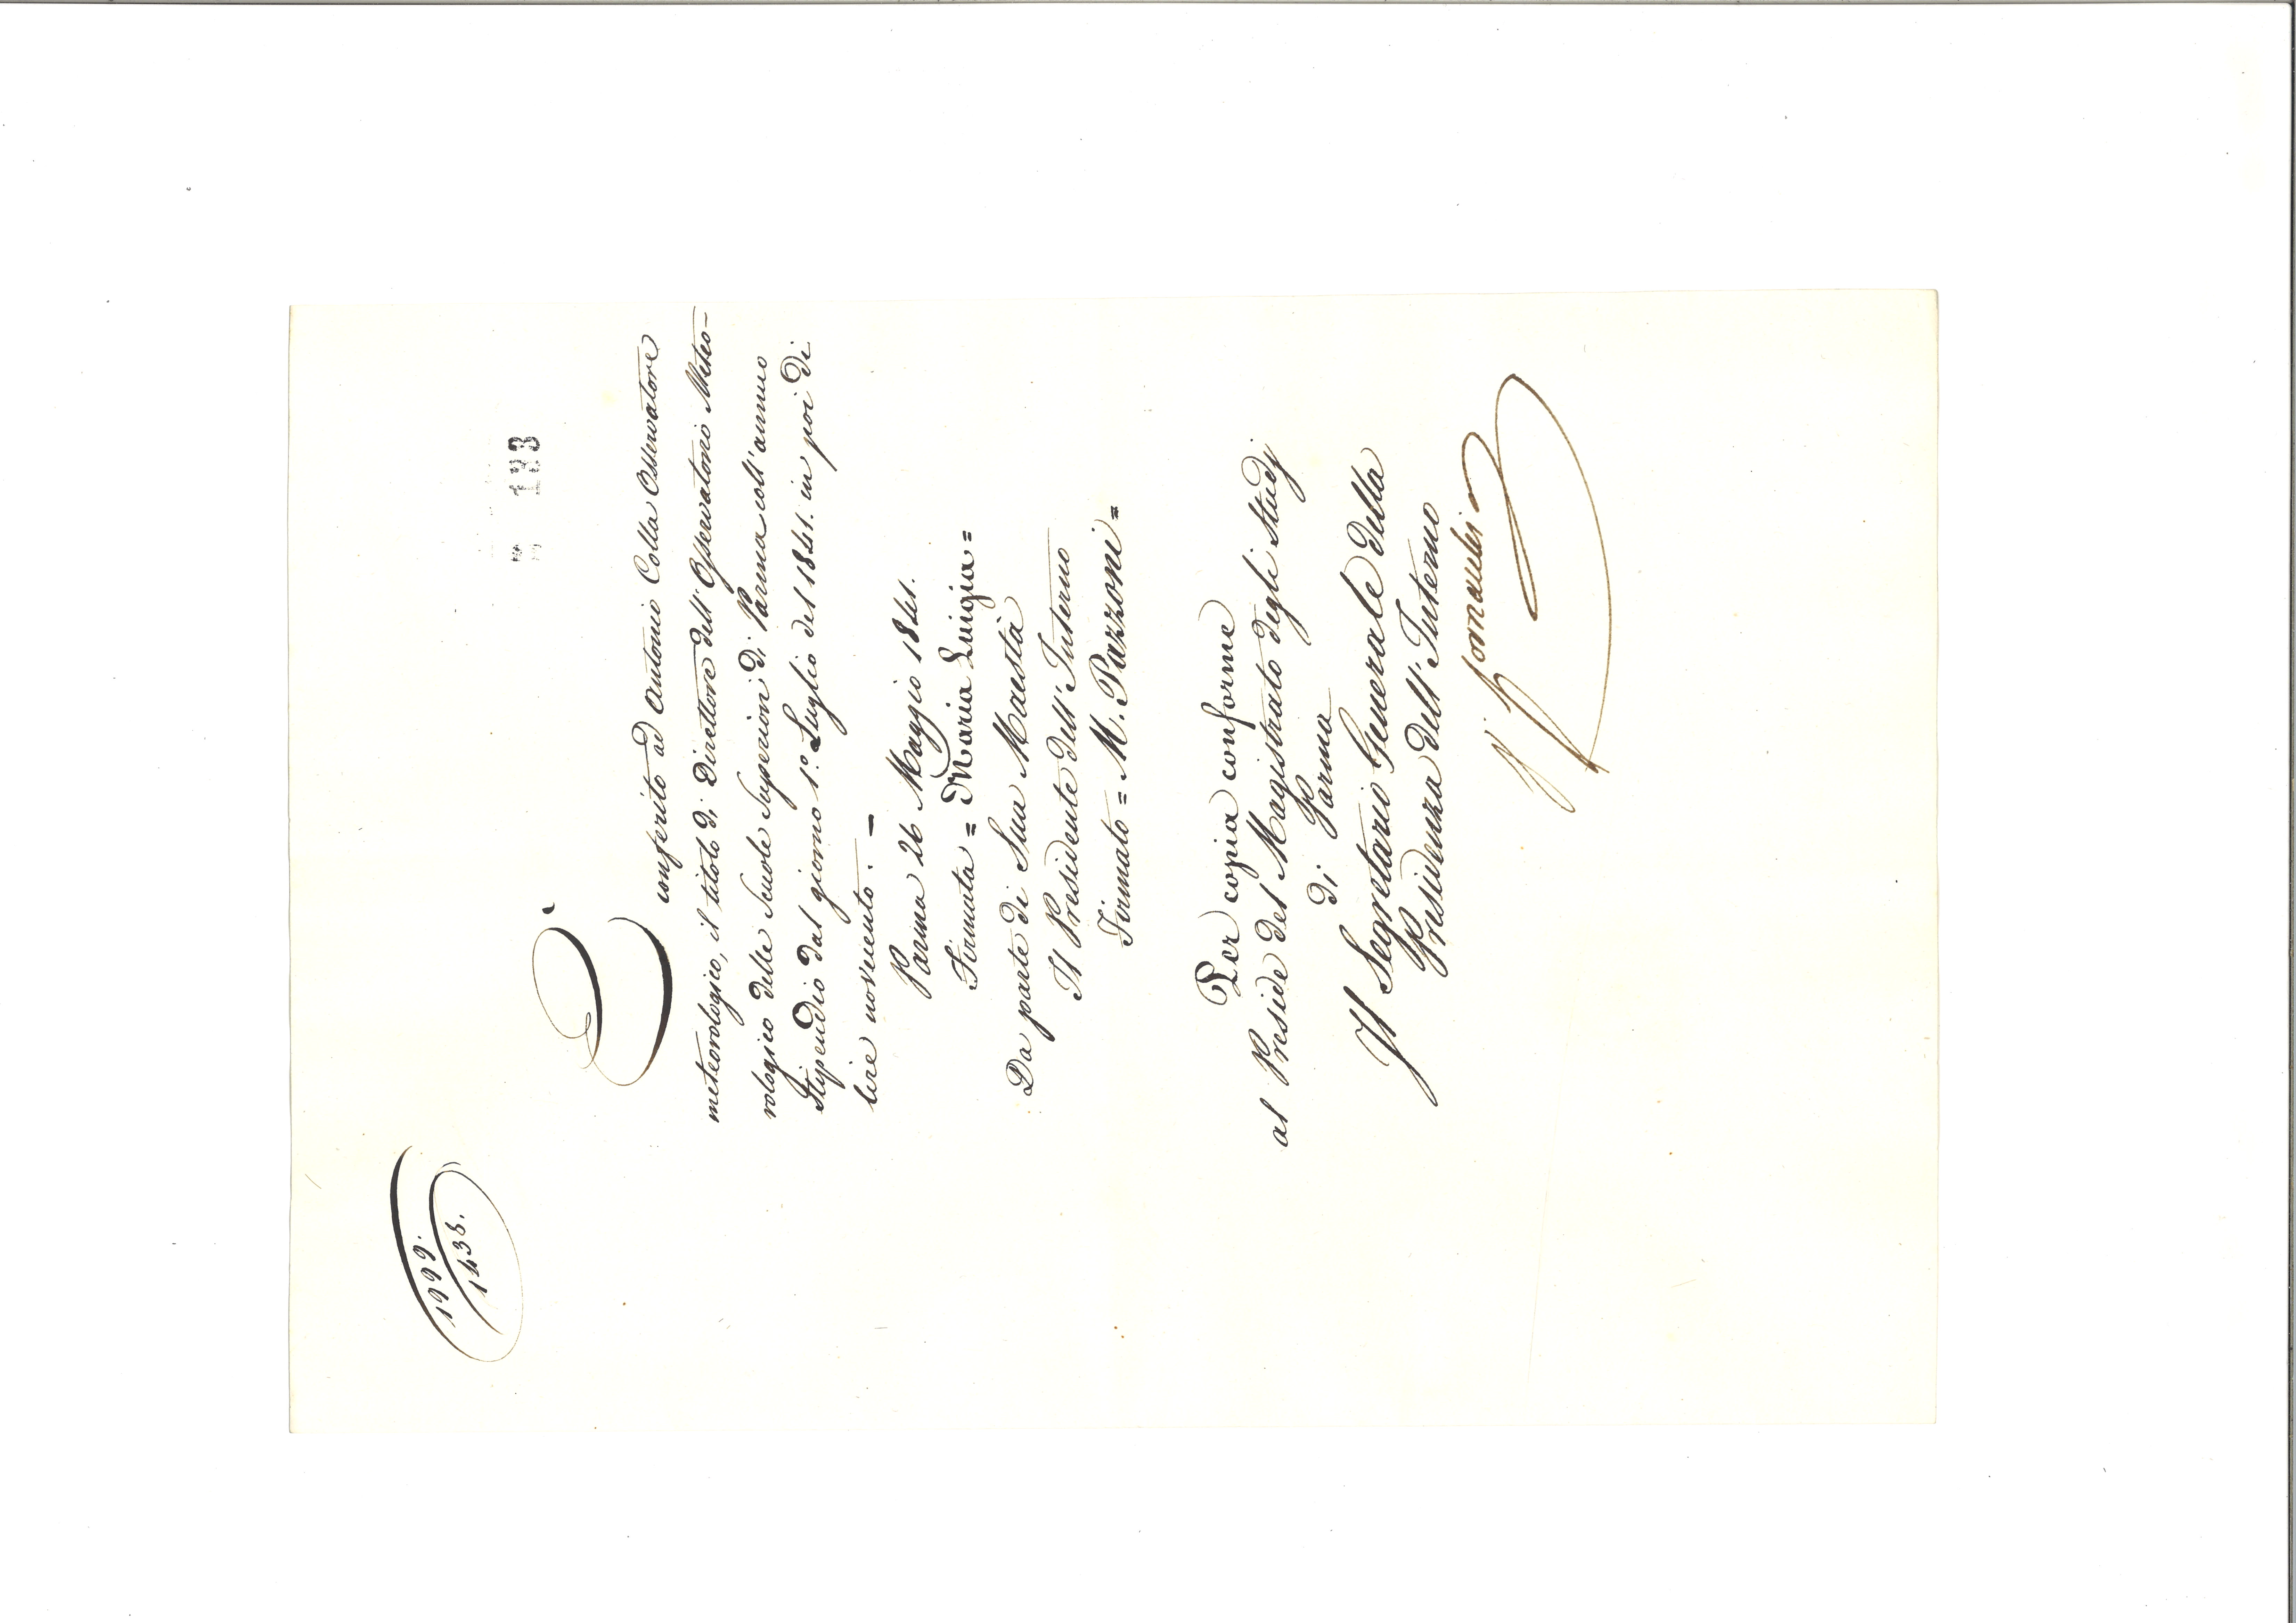 1999.
1438.
133
È conferito ad Antonio Colla Osservatore
meteorologico, il titolo di Direttore dell'Osservatorio Meteo-
rologico delle Scuole Superiori di Parma coll'annuo
stipendio dal giorno 1.° Luglio del 1841. in poi di
lire novecento. —
Parma 26 Maggio 1841.
Firmata = Maria Luigia =
Da parte di Sua Maestà
Il Presidente dell'Interno
Firmato = M. Pazzoni =
Per copia conforme
al Preside del Magistrato degli Studj
di Parma
Il Segretario Generale della
Presidenza dell'Interno